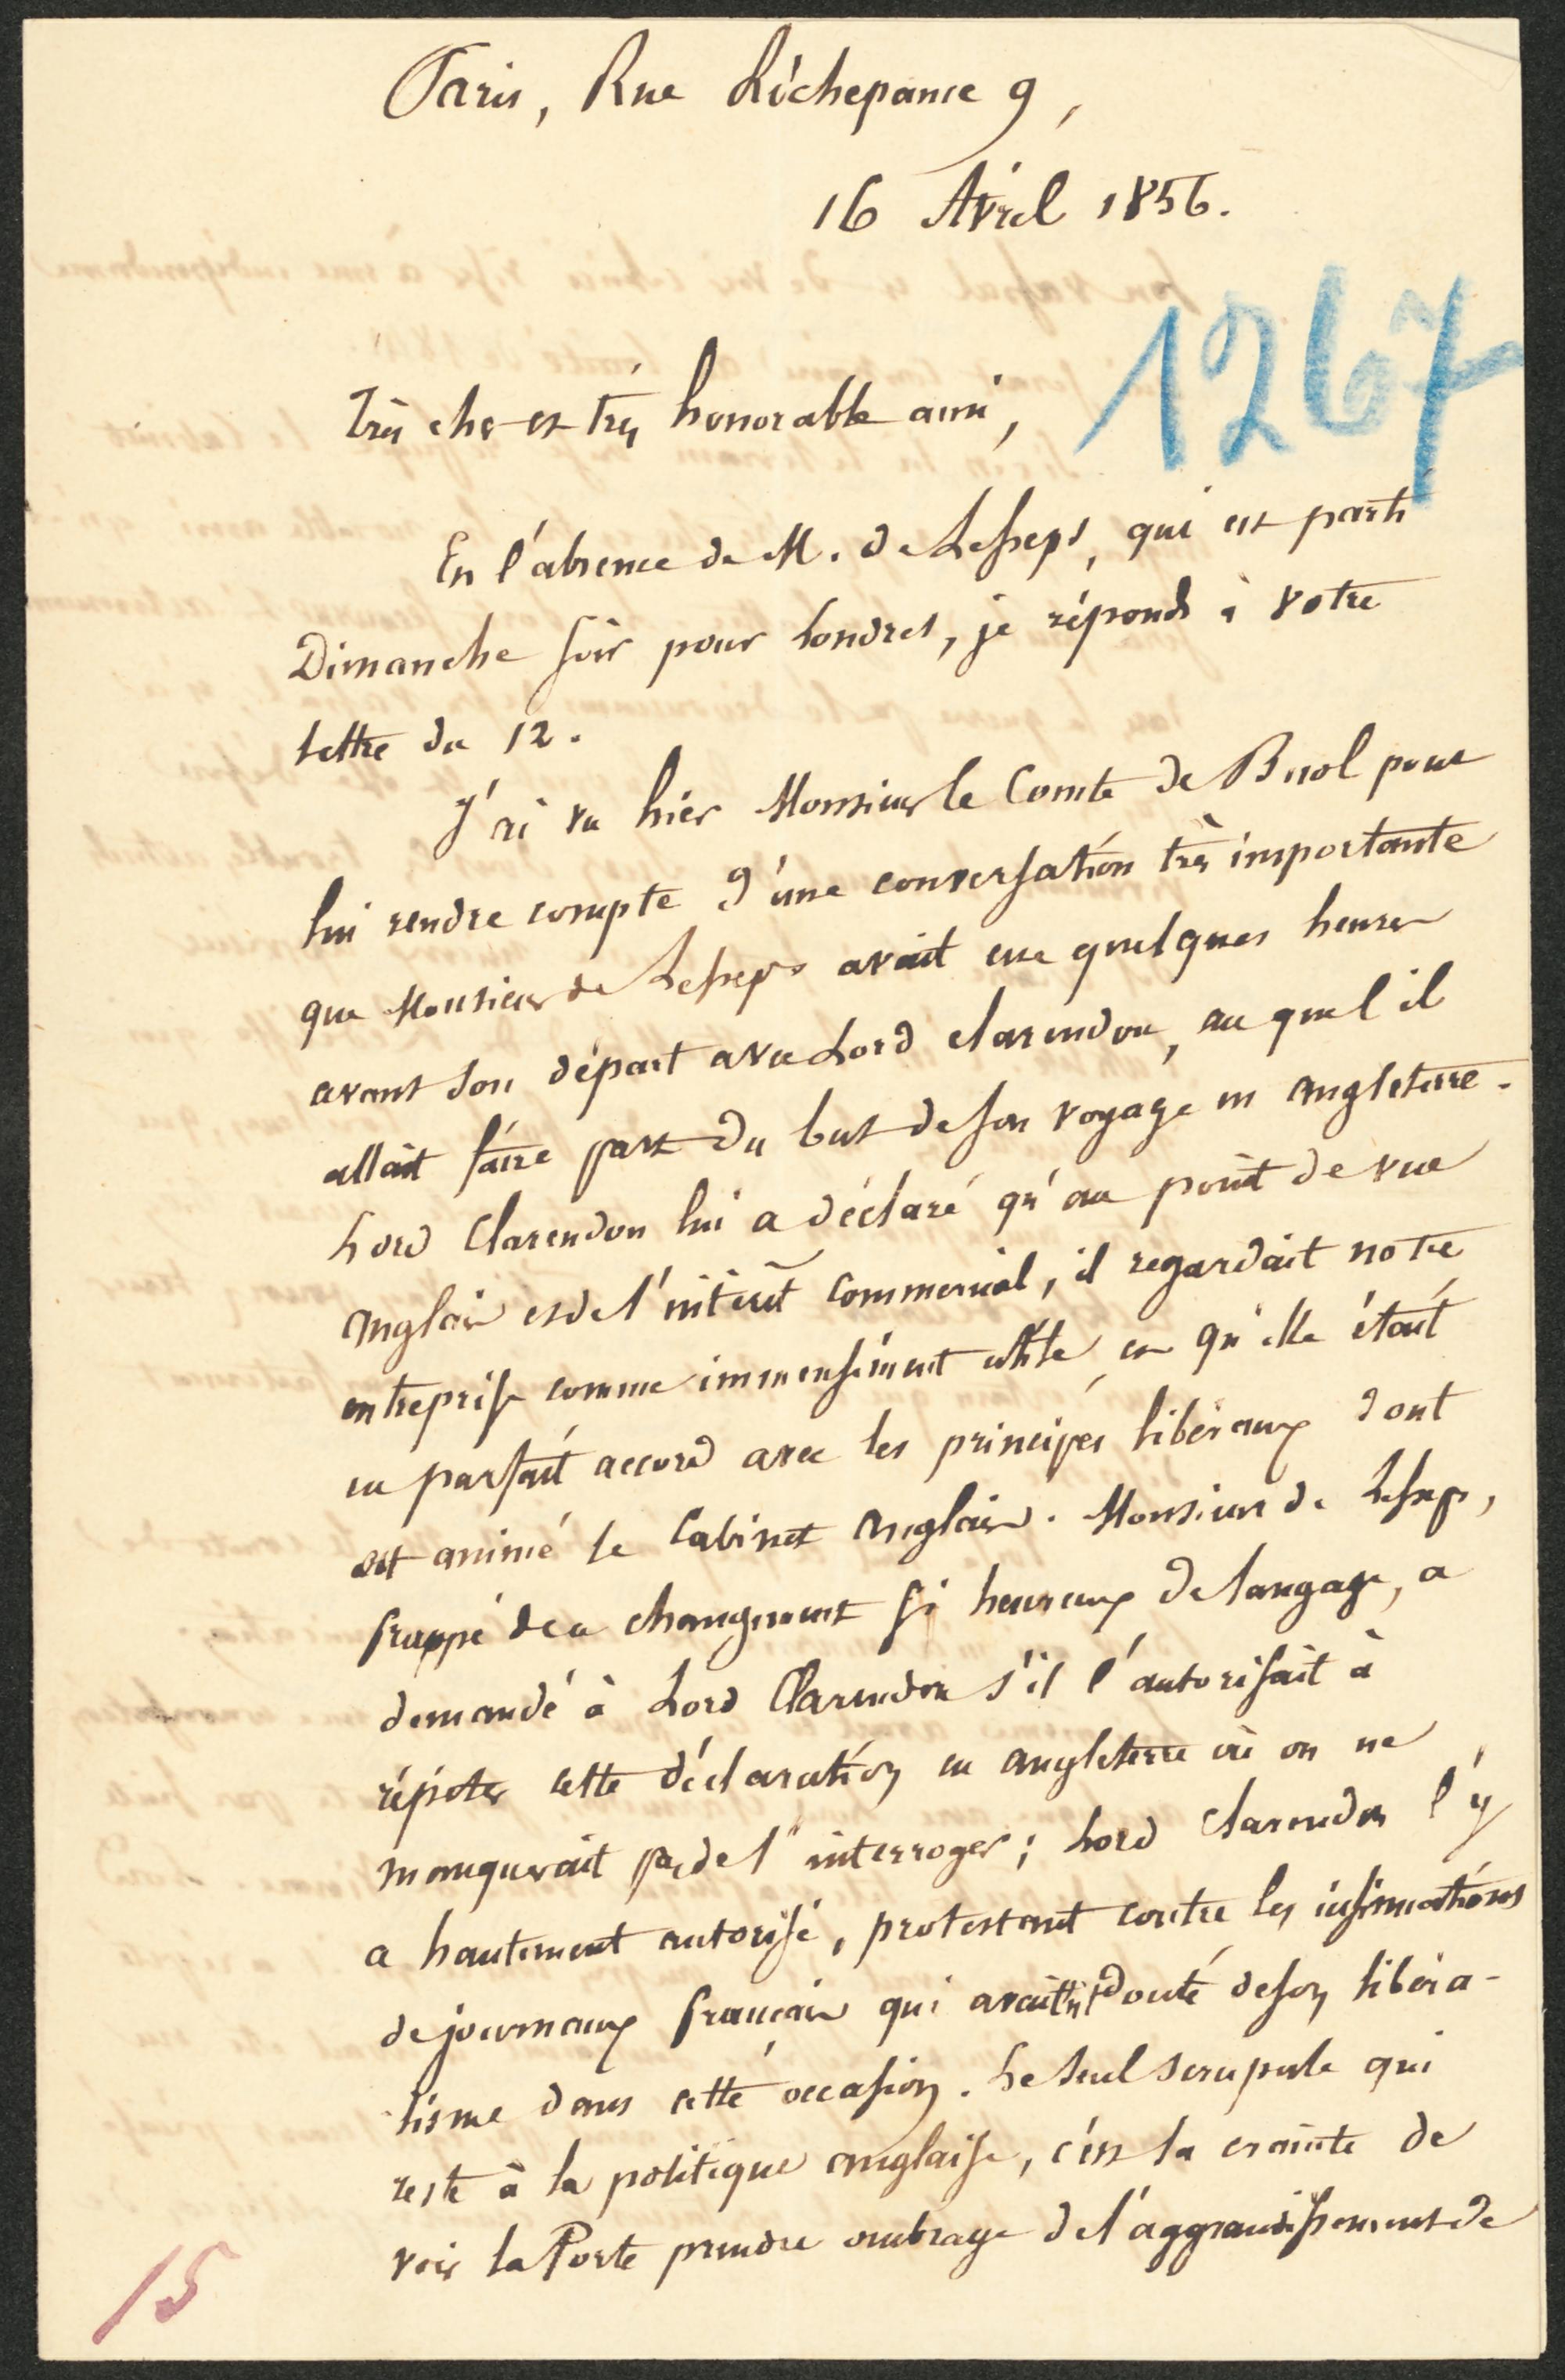 Paris, Rue Richepance 9,
16 Avril 1856.
1267
Très cher et très honorable ami,
En l'absence de M. de Lesseps, qui est parti
Dimanche soir pour Londres, je réponds à votre
lettre du 12.
J'ai vu hier Monsieur le Comte de Buol pour
lui rendre compte d'une conversation très importante
que Monsieur de Lesseps avait eue quelques heures
avant son départ avec Lord Clarendon, au quel il
allait faire part du but de son voyage en Angleterre.
Lord Clarendon lui a déclaré qu'au point de vue
Anglais et de l'intérêt commercial, il regardait notre
entreprise comme immensément utile, et qu'elle était
en parfait accord avec les principes libéraux dont
est animé le Cabinet Anglais. Monsieur de Lesseps,
frappé de ce changement si heureux de langage, a
demandé à Lord Clarendon s'il l'autorisait à
répéter cette déclaration en Angleterre où on ne
manquerait pas de l'interroger; Lord Clarendon l'y
a hautement autorisé, protestant contre les insinuations
de journaux français qui avaient douté de son libéra-
lisme dans cette occasion. Le seul scrupule qui
reste à la politique anglaise, c'est la crainte de
voir la Porte prendre ombrage de l'aggrandissement de
15